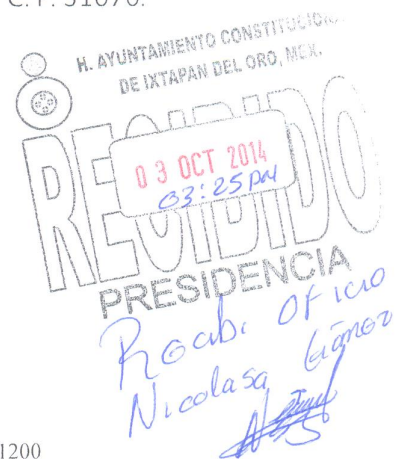 C.P. 51070.
H. AYUNTAMIENTO CONSTITUCIONAL
DE IXTAPAN DEL ORO, MEX.
RECIBIDO
03 OCT 2014
03:25 PM
PRESIDENCIA
Recibi Oficio
Nicolasa Gómez
1200